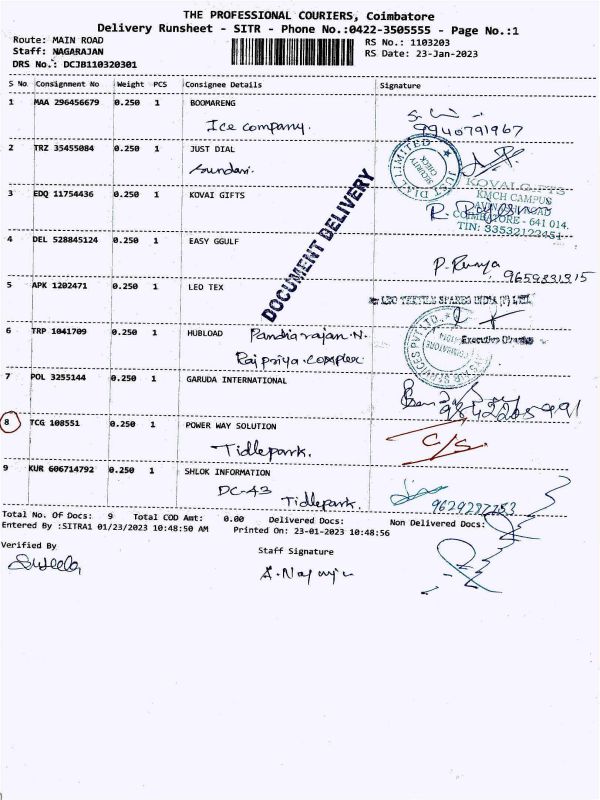 THE PROFESSIONAL COURIERS, Coimbatore
Delivery Runsheet - SITR - Phone No.:0422-3505555 - Page No.:1
Route: MAIN ROAD
RS No.: 1103203
Staff: NAGARAJAN
RS Date: 23-Jan-2023
DRS No.: DCJB110320301
S No. Consignment No Weight PCS Consignee Details Signature
1 MAA 296456679 0.250 1 BOOMARENG
Ice company.
9940791967
2 TRZ 35455084 0.250 1 JUST DIAL
Sundari.
JUST DIAL LIMITED
SECURITY CHECK
3 EDQ 11754436 0.250 1 KOVAI GIFTS
KMCH CAMPUS
COIMBATORE - 641 014.
DOCUMENT DELIVERY
4 DEL 528845124 0.250 1 EASY GGULF
P. Ramya
5 APK 1202471 0.250 1 LEO TEX
LEO TEXTILE SPARES INDIA (P) LTD.,
6 TRP 1041709 0.250 1 HUBLOAD Pandiarajan.N.
Rajpriya.complex
7 POL 3255144 0.250 1 GARUDA INTERNATIONAL
8 TCG 108551 0.250 1 POWER WAY SOLUTION
Tidlepark.
C/S.
9 KUR 606714792 0.250 1 SHLOK INFORMATION
DC-43 Tidlepark.
Total No. Of Docs: 9 Total COD Amt: 0.00 Delivered Docs: Non Delivered Docs:
Entered By :SITRA1 01/23/2023 10:48:50 AM Printed On: 23-01-2023 10:48:56
Verified By
Staff Signature